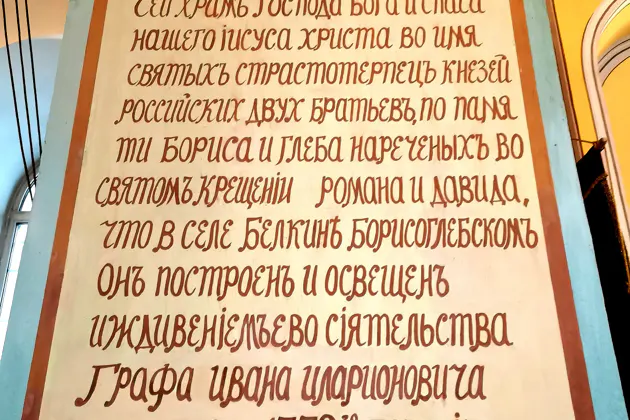 СЕЙ ХРАМЪ ГОСПОДА БОГА И СПАСА
НАШЕГО ІИСУСА ХРИСТА ВО ИМЯ
СВЯТЫХЪ СТРАСТОТЕРПЕЦЪ КНЕЗЕЙ
РОССИЙСКИХ ДВУХ БРАТЬЕВЪ, ПО ПАМЯ
ТИ БОРИСА И ГЛЕБА НАРЕЧЕНЫХЪ ВО
СВЯТОМЪ КРЕЩЕНІИ РОМАНА И ДАВИДА,
ЧТО В СЕЛЕ БЕЛКИНѢ БОРИСОГЛЕБСКОМЪ
ОНЪ ПОСТРОЕНЪ И ОСВЕЩЕНЪ
ИЖДИВЕНІЕМЪ ЕВО СІЯТЕЛЬСТВА
ГРАФА ИВАНА ИЛАРИОНОВИЧА